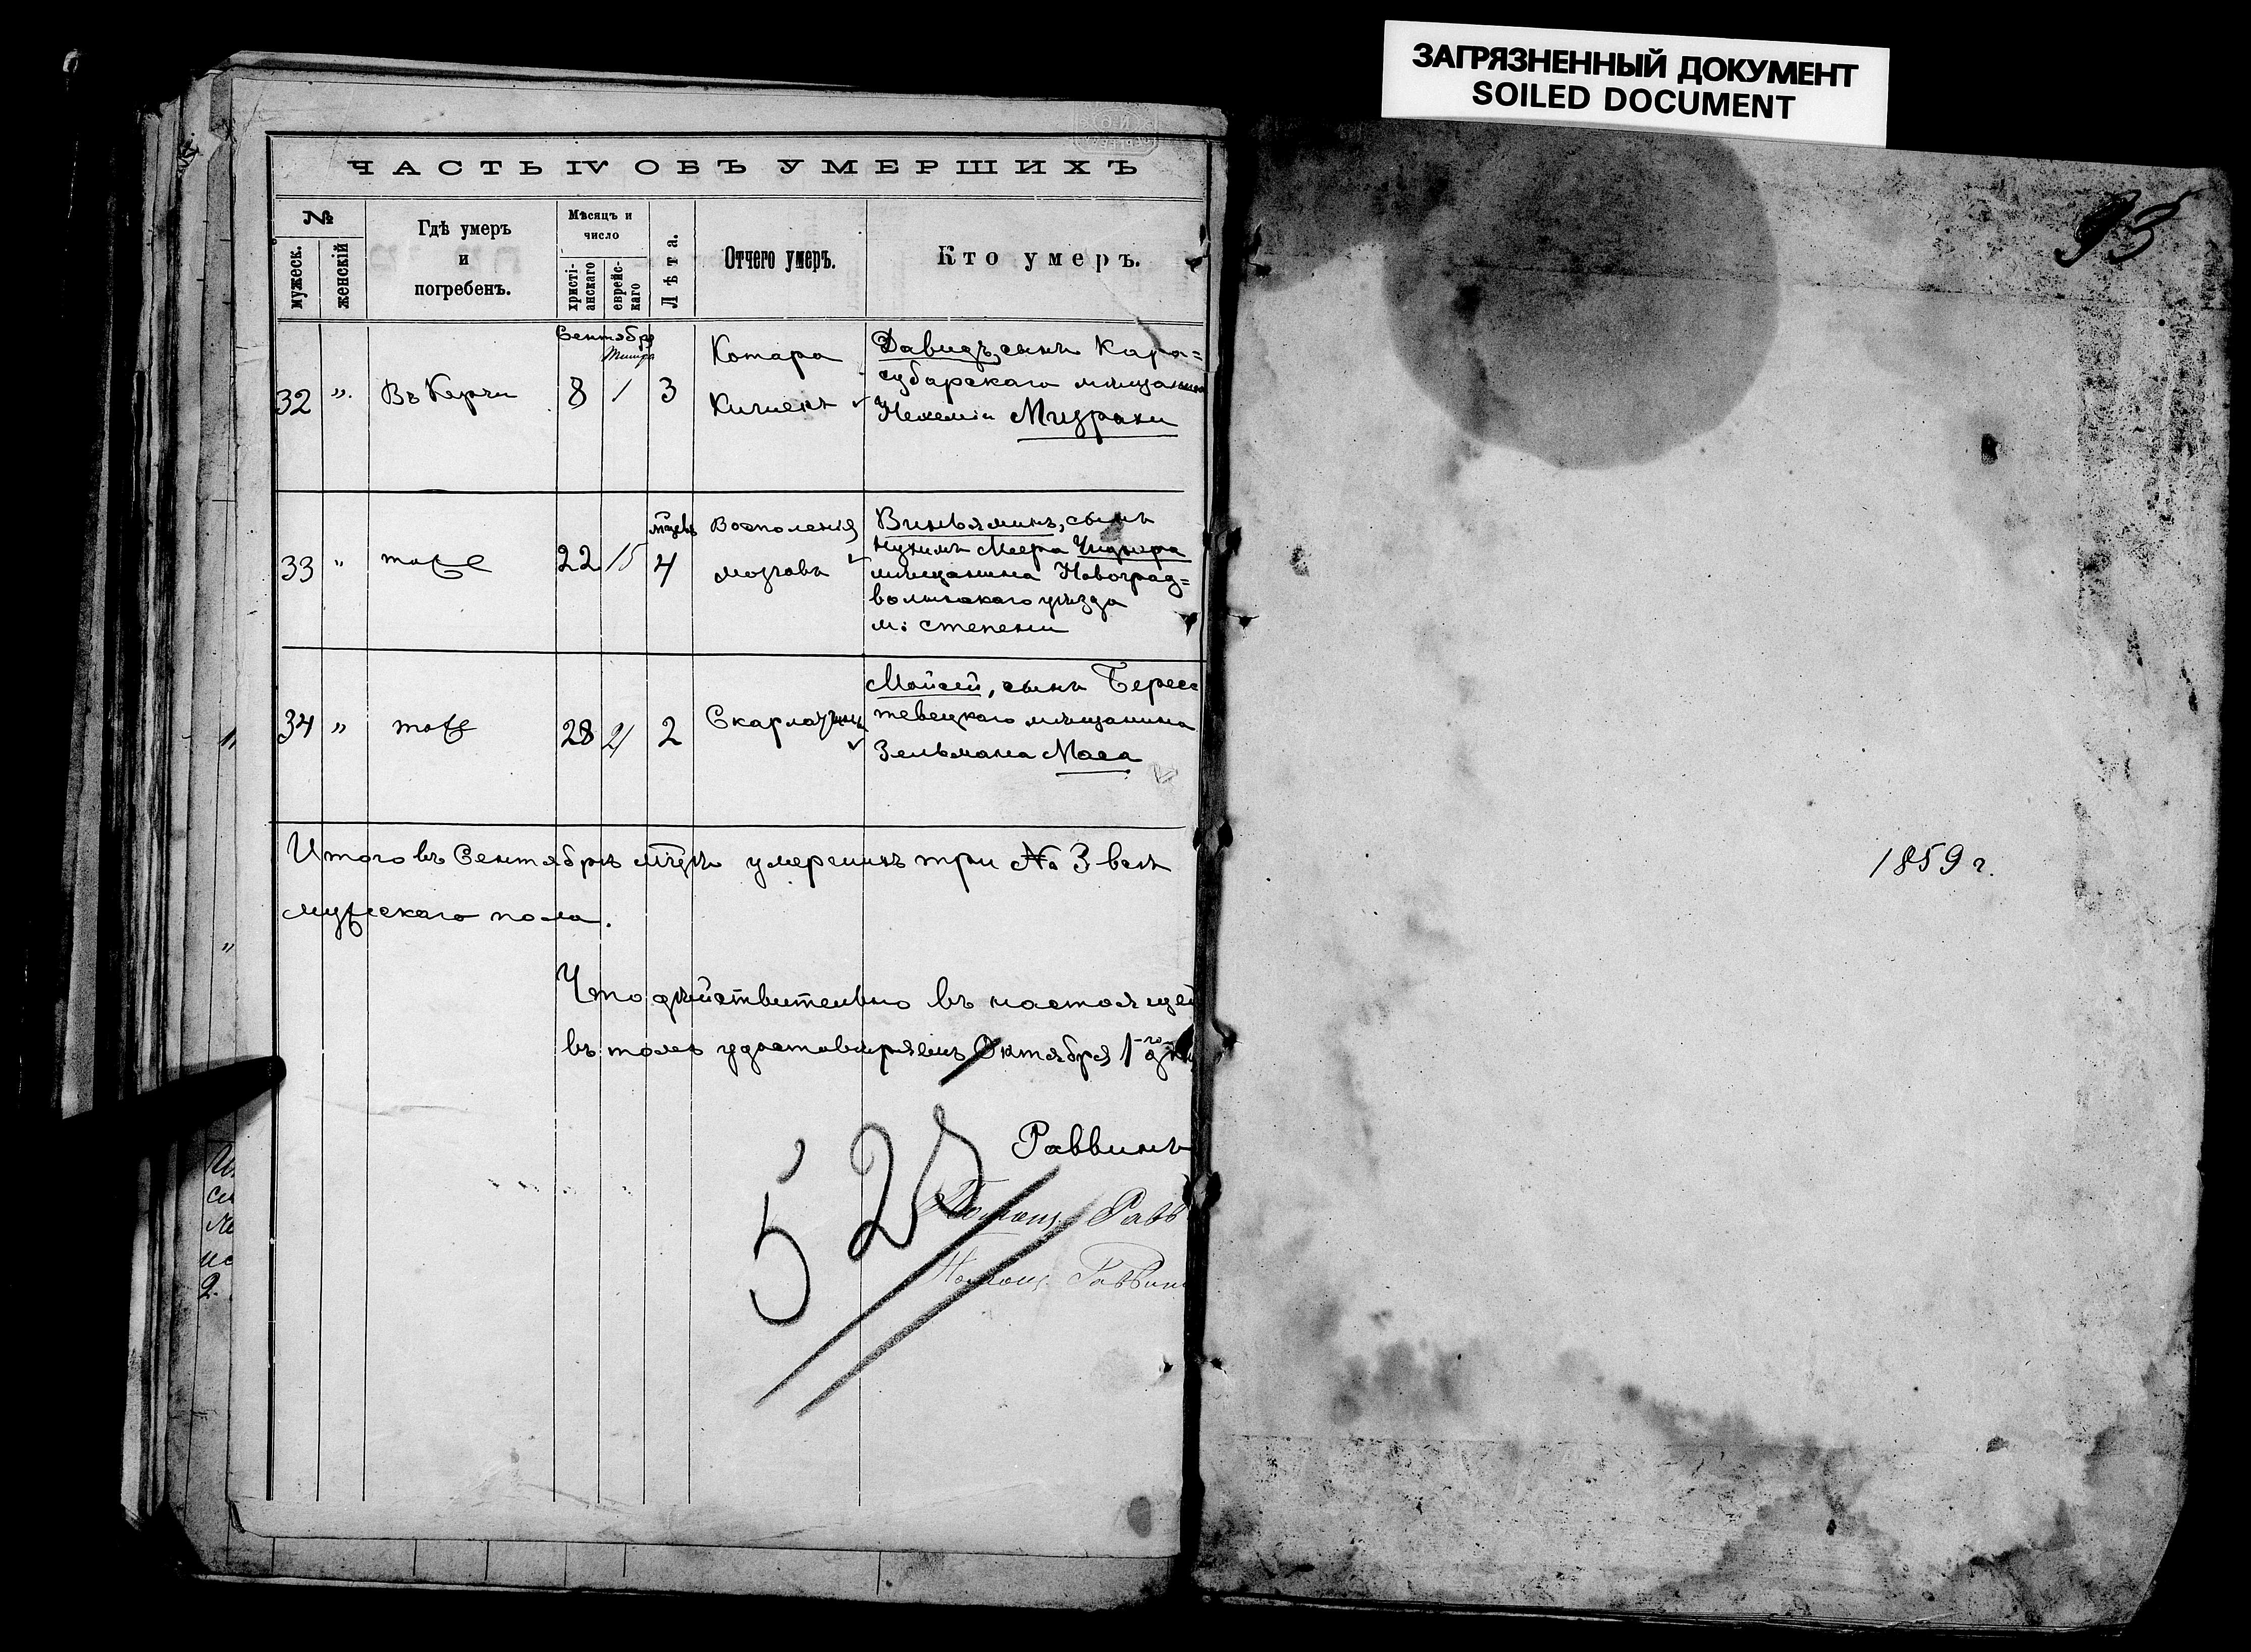 ЗАГРЯЗНЕННЫЙ ДОКУМЕНТ
SOILED DOCUMENT
ЧАСТЬ IV ОБЪ УМЕРШИХЪ
№
мужеск.
женскій
Гдѣ умеръ
и
погребенъ.
Мѣсяцъ и
число
христі-
анскаго
еврейс-
каго
Лѣта.
Отчего умеръ.
Кто умеръ.
Сентябр
32 „ Въ Керчи 8 1 3
Катара
Кишекъ
Давидъ, сынъ Кара=
субарскаго мѣщанина
Нехеміи Мизрахи
33 „ тоже 22 15 4
Воспаленія
мозговъ
Виньяминъ, сынъ
Меера
мѣщанина Новоград=
волынскаго уѣзда
м: степени
34 „ тоже 28 21 2
Скарлатины
Мойсей, сынъ Берес
течецкаго мѣщанина
Зельмана Маса
Итого въ Сентябрѣ мцѣ умершихъ три № 3 всѣ
мужескаго пола.
Что дѣйствительно въ настоящей
въ томъ удостовѣряемъ Октября 1-го дня
Раввинъ
Помощ. Равв
Помощ. Раввин
52
93
1859 г.